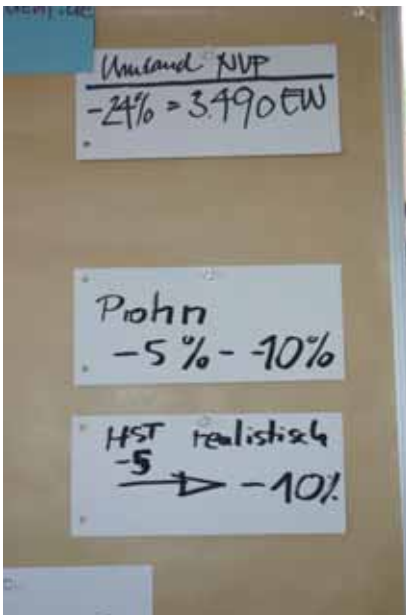 Umland NVP
-24% = 3.490 EW
Prohn
-5% - -10%
HST realistisch
-5
-10%